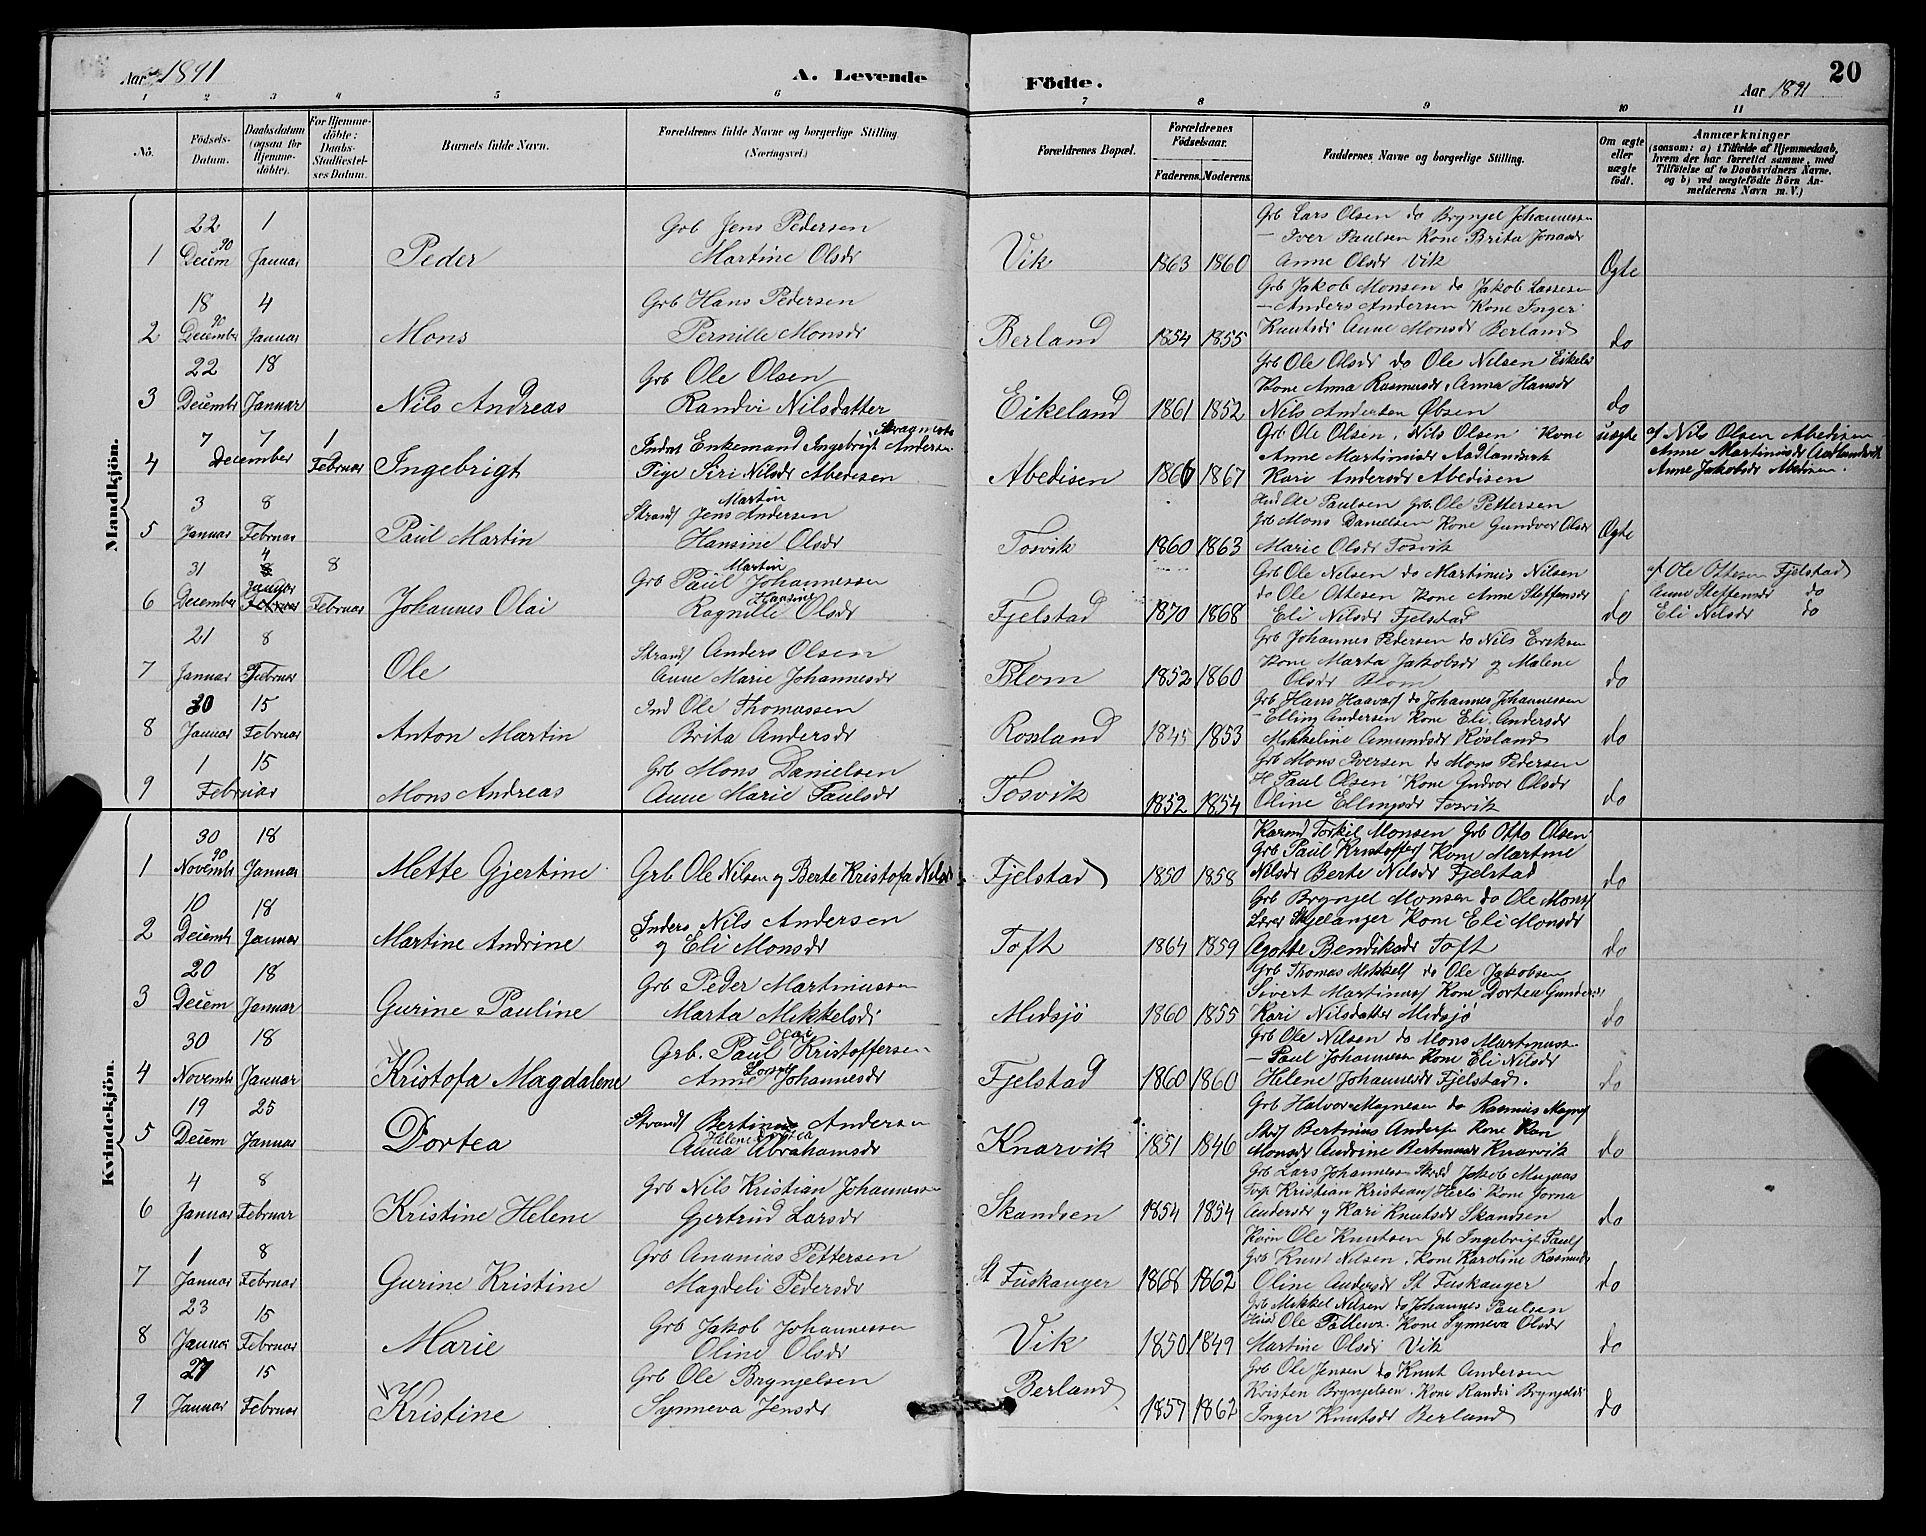 Aar 1891
A. Levende
Födte.
Aar 1891
20
1 2 3 4 5 6 7 8 9 10 11
Nö.
Födsels-
Datum.
Daabsdatum
(ogsaa for
Hjemme-
döbte).
For Hjemme-
döbte:
Daabs-
Stadfæstel-
ses Datum.
Barnets fulde Navn.
Forældrenes fulde Navne og borgerlige Stilling
(Næringsvei.)
Forældrenes Bopæl.
Forældrenes
Födselsaar.
Faderens. Moderens.
Faddernes Navne og borgerlige Stilling.
Om ægte
eller
uægte
födt.
Anmærkninger
(saasom: a) i Tilfælde af Hjemmedaab,
hvem der har forrettet samme, med
Tilföielse af to Daabsvidners Navne.
og b) ved uægtefödte Börn An-
melderens Navn m. V.)
Mandkjön.
22 1 Grb Jens Pedersen Grb Lars Olsen do Brynjel Johannessen
90 — Iver Paulsen Kone Brita Jonasdr
1 Decem Januar Peder Martine Olsdr Vik 1863 1860 Anne Olsdr Vik Ægte
18 4 Grb Hans Pedersen Grb Jakob Monsen do Jakob Lassesen
90 — Anders Andersen Kone Inger
2 December Januar Mons Pernille Monsdr Berland 1854 1855 Knutsdr Anne Monsdr Berland do
22 18 Grb Ole Olsen Grb Ole Olsdr do Ole Nilsen Eikeld
Kone Anna Rasmusdr, Anna Hansdr
3 Decembr Januar Nils Andreas Randvi Nilsdatter Eikeland 1861 1852 Nils Andersen Øbsen do
7 7 1 Indst Enkemand Ingebrigt Andersen Grb Ole Olsen, Nils Olsen Kone uægte af Nils Olsen Abedisen
Anne Martinusdr Aadlandsvik Anne Martinusdr Aadlandsvik
4 December Februar Ingebrigt Pige Siri Nilsdr Abedisen Abedisen 1866 1867 Kari Andersdr Abedisen Anne Jakobsdr Abedisen.
3 8 Martin Husm Ole Paulsen Grb Ole Pettersen
Strands Jens Andersen Grb Mons Danielsen Kone Gundvor Olsdr
5 Januar Februar Paul Martin Hansine Olsdr Tosvik 1860 1863 Marie Olsdr Tosvik Ægte
31 4 8 Martin Grb Ole Nilsen do Martinus Nilsen af Ole Ottesen Fjelstad
Januar Grb Paul Johannessen do Ole Ottesen Kone Anne Steffensdr Anne Steffensdr do
6 December Februar Februar Johannes Olai Ragnille Hansine Olsdr Fjelstad 1870 1868 Eli Nilsdr Fjelstad do Eli Nilsdr do
21 8 Strands Anders Olsen Grb Johannes Pedersen do Nils Eriksen
Kone Marta Jakobsdr og Malene
7 Januar Februar Ole Anne Marie Johannesdr Blom 1852 1860 Olsdr Blom do
30 15 Ind Ole Thomassen Grb Hans Haavars do Johannes Johannessen
— Elling Andersen Kone Eli Andersdr
8 Januar Februar Anton Martin Brita Andersdr Rossland 1845 1853 Mikkeline Amundsdr Røsland do
1 15 Grb Mons Danielsen Grb Mons Iversen do Mons Pedersen
H Paul Olsen Kone Gudvor Olsdr
9 Februar Mons Andreas Anne Marie Paulsdr Tosvik 1852 1854 Oline Ellingsdr Tosvik do
Kvindekjön.
30 18 Torkil Monsen Grb Otto Olsen
90 Grb Paul Kristoffers Kone Martine
1 Novembr Januar Mette Gjertine Grb Ole Nilsen og Berte Kristofa Nilsdr Fjelstad 1850 1858 Nilsdr Berte Nilsdr Fjelstad do
10 18 Inders Nils Andersen Grb Brynjel Monsen do Ole Mons
Lærer Skjelanger Kone Eli Monsdr
2 Decembr Januar Martine Andrine og Eli Monsdr Toft 1864 1859 Agathe Bendiksdr Toft do
20 18 Grb Peder Martinussen Grb Thomas Mikkels do Ole Jakobsen
Sivert Martinus Kone Dortea Gundersdr
3 Decem Januar Gurine Pauline Marta Mikkelsdr Midsjö 1860 1855 Kari Nilsdatter Midsjö do
30 18 Grb. Paul Kristoffersen Grb Ole Nilsen do Mons Martinussen
— Paul Johannessen Kone Eli Nilsdr
4 Novembr Januar Kristofa Magdalene Anne Johannesdr Fjelstad 1860 1860 Helene Johannesdr Fjelstad. do
19 25 Strands Bertinus Andersen Grb Halvor Magnesen do Rasmus Magnes
Helene Dortea Bertinus Anders Kone Kari
5 Decem Januar Dortea Anna Abrahamsdr Knarvik 1851 1846 Monsdr Andrine Bertinusdr Knarvik do
4 8 Grb Nils Kristian Johannessen Grb Lars Johannessen Jakob Magnus
Kristian Kristians Herlö Kone Jorna
6 Januar Februar Kristine Helene Gjertrud Larsdr Skandsen 1854 1854 Andersdr og Kari Knutsdr Skandsen do
1 8 Grb Ananias Pettersen Ole Knutsen Grb Ingebrigt Pauls
Grb Knut Nilsen, Kone Karoline Rasmusdr
7 Januar Februar Gurine Kristine Magdeli Pedersdr St Fuskanger 1866 1862 Oline Andersdr St Fuskanger do
23 15 Grb Jakob Johannessen Grb Mikkel Nilsen do Johannes Paulsen
Husm Ole Kone Synneva Olsdr
8 Januar Februar Marie Oline Olsdr Vik 1850 1849 Martine Olsdr Vik do
27 15 Grb Ole Brynjelsen Grb Ole Jensen do Knut Andersen
Berland Kristen Brynjelsen. Kone Randi Brynjelsdr
9 Januar Februar Kristine Synneva Jensdr 1857 1862 Inger Knutsdr Berland do